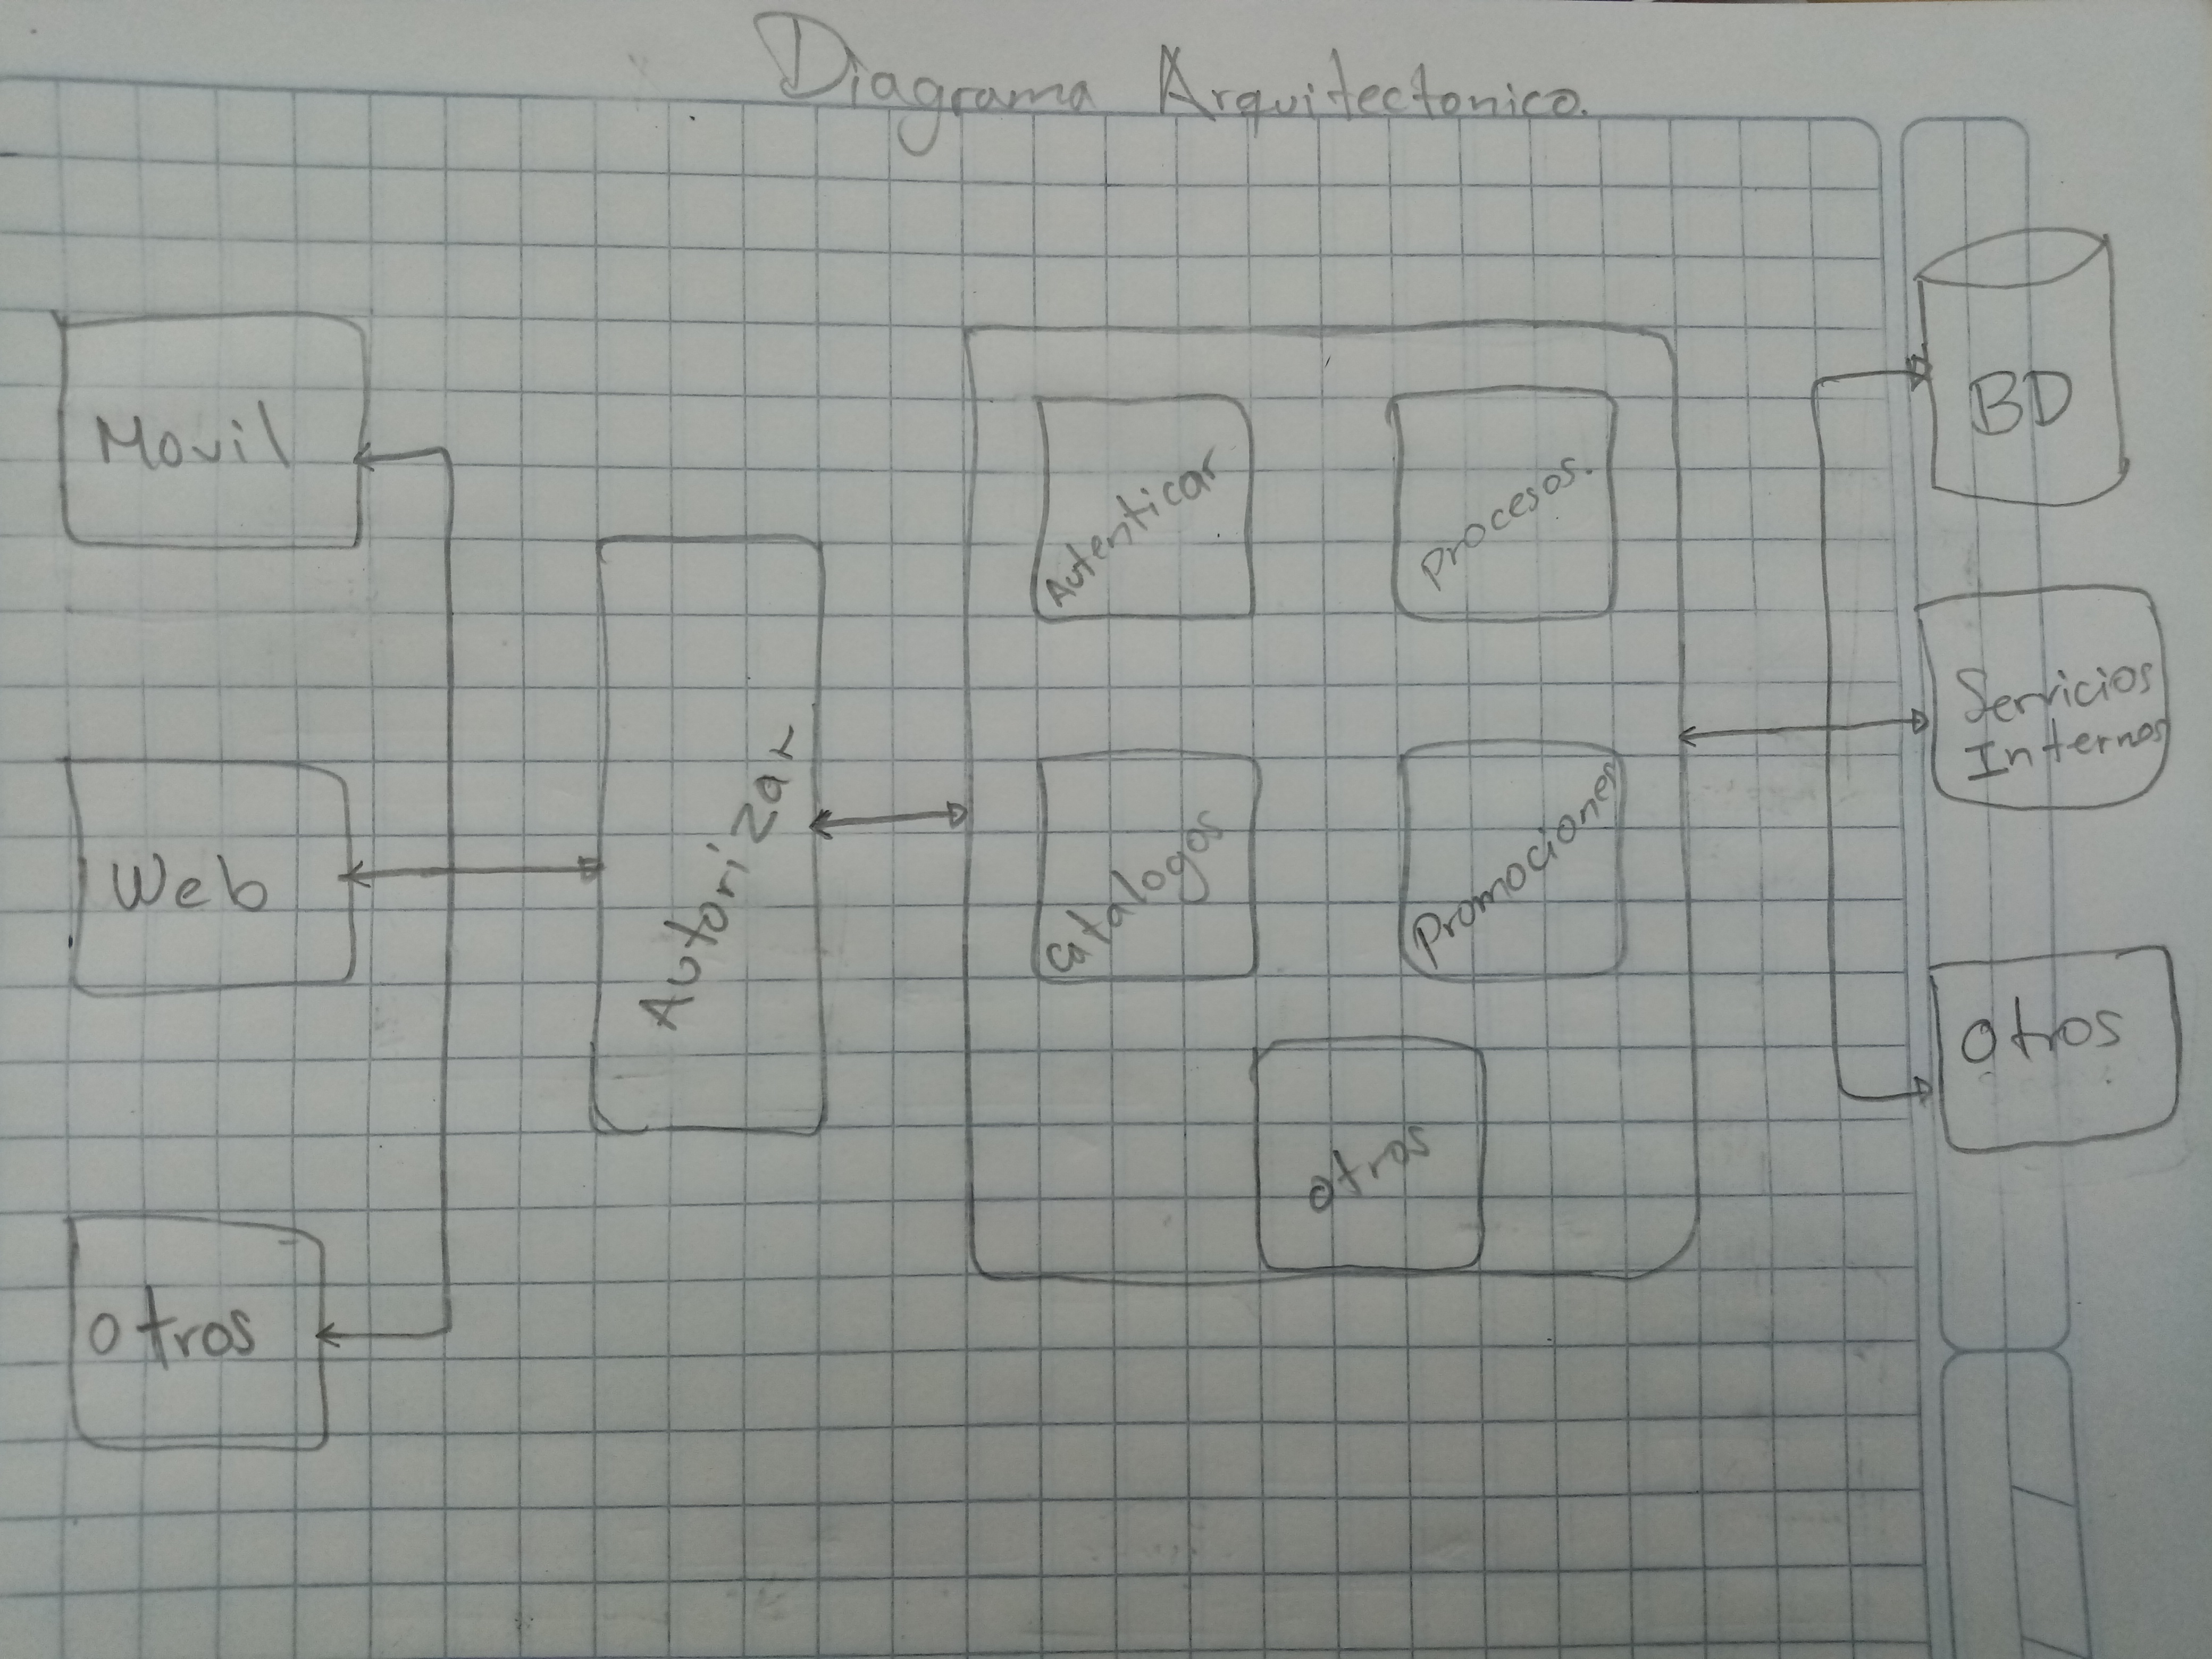 Diagrama Arquitectonico.
Movil
Web
otros
Autorizar
Autenticar
Procesos.
Catalogos
Promociones
otros
BD
Servicios
Internos
otros